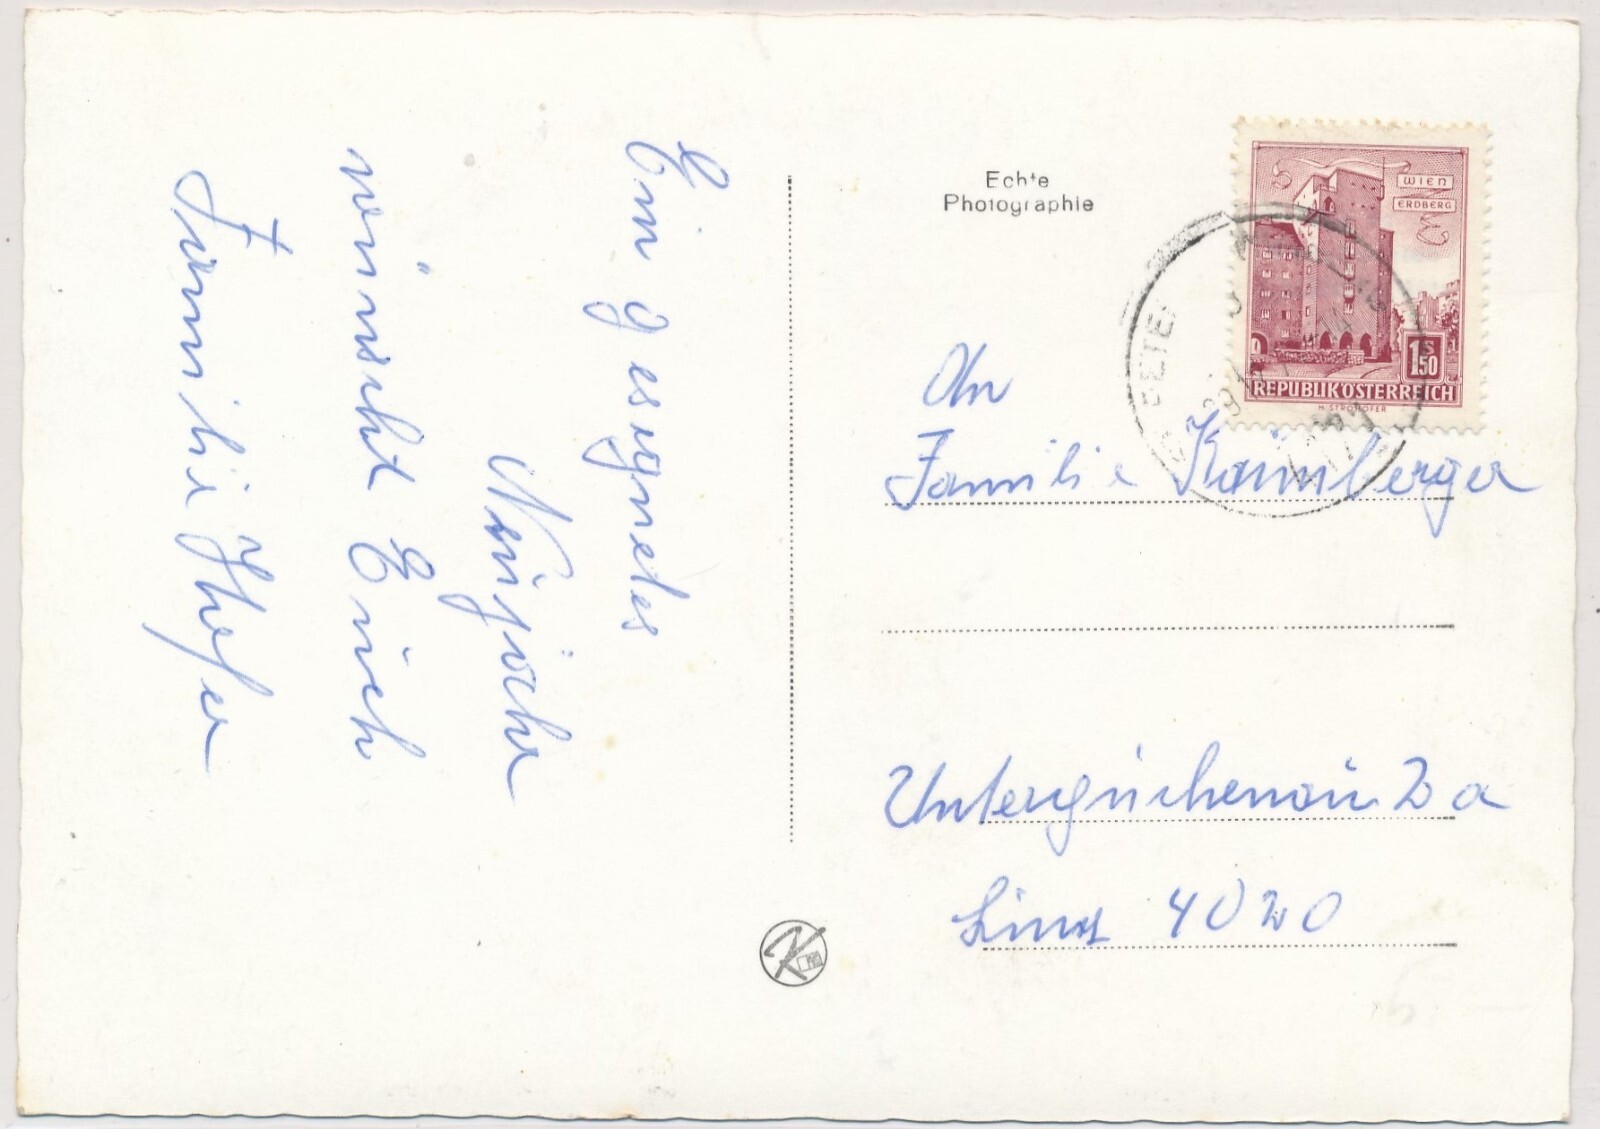 Ein gesegnetes
Neujahr
wünscht Euch
Familie Hofer
Echte
Photographie
WIEN
ERDBERG
1S50
REPUBLIK ÖSTERREICH
H. STROHOFER
An
Familie Kaimberger
2a
Linz 4020